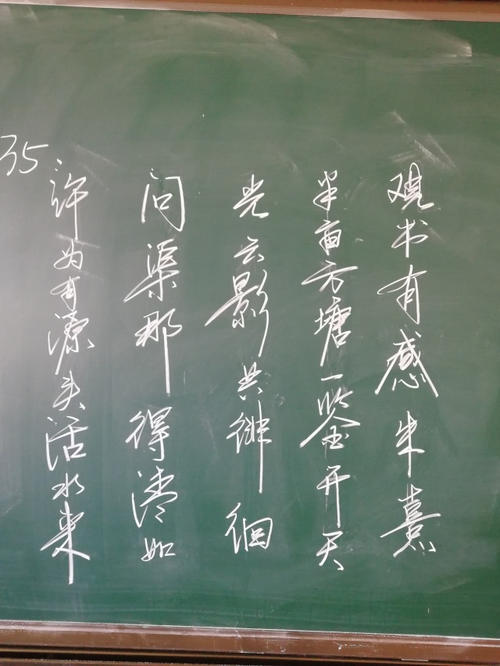 观书有感朱熹
半亩方塘一鉴开天
光云影共徘徊
问渠那得清如
许为有源头活水来
35